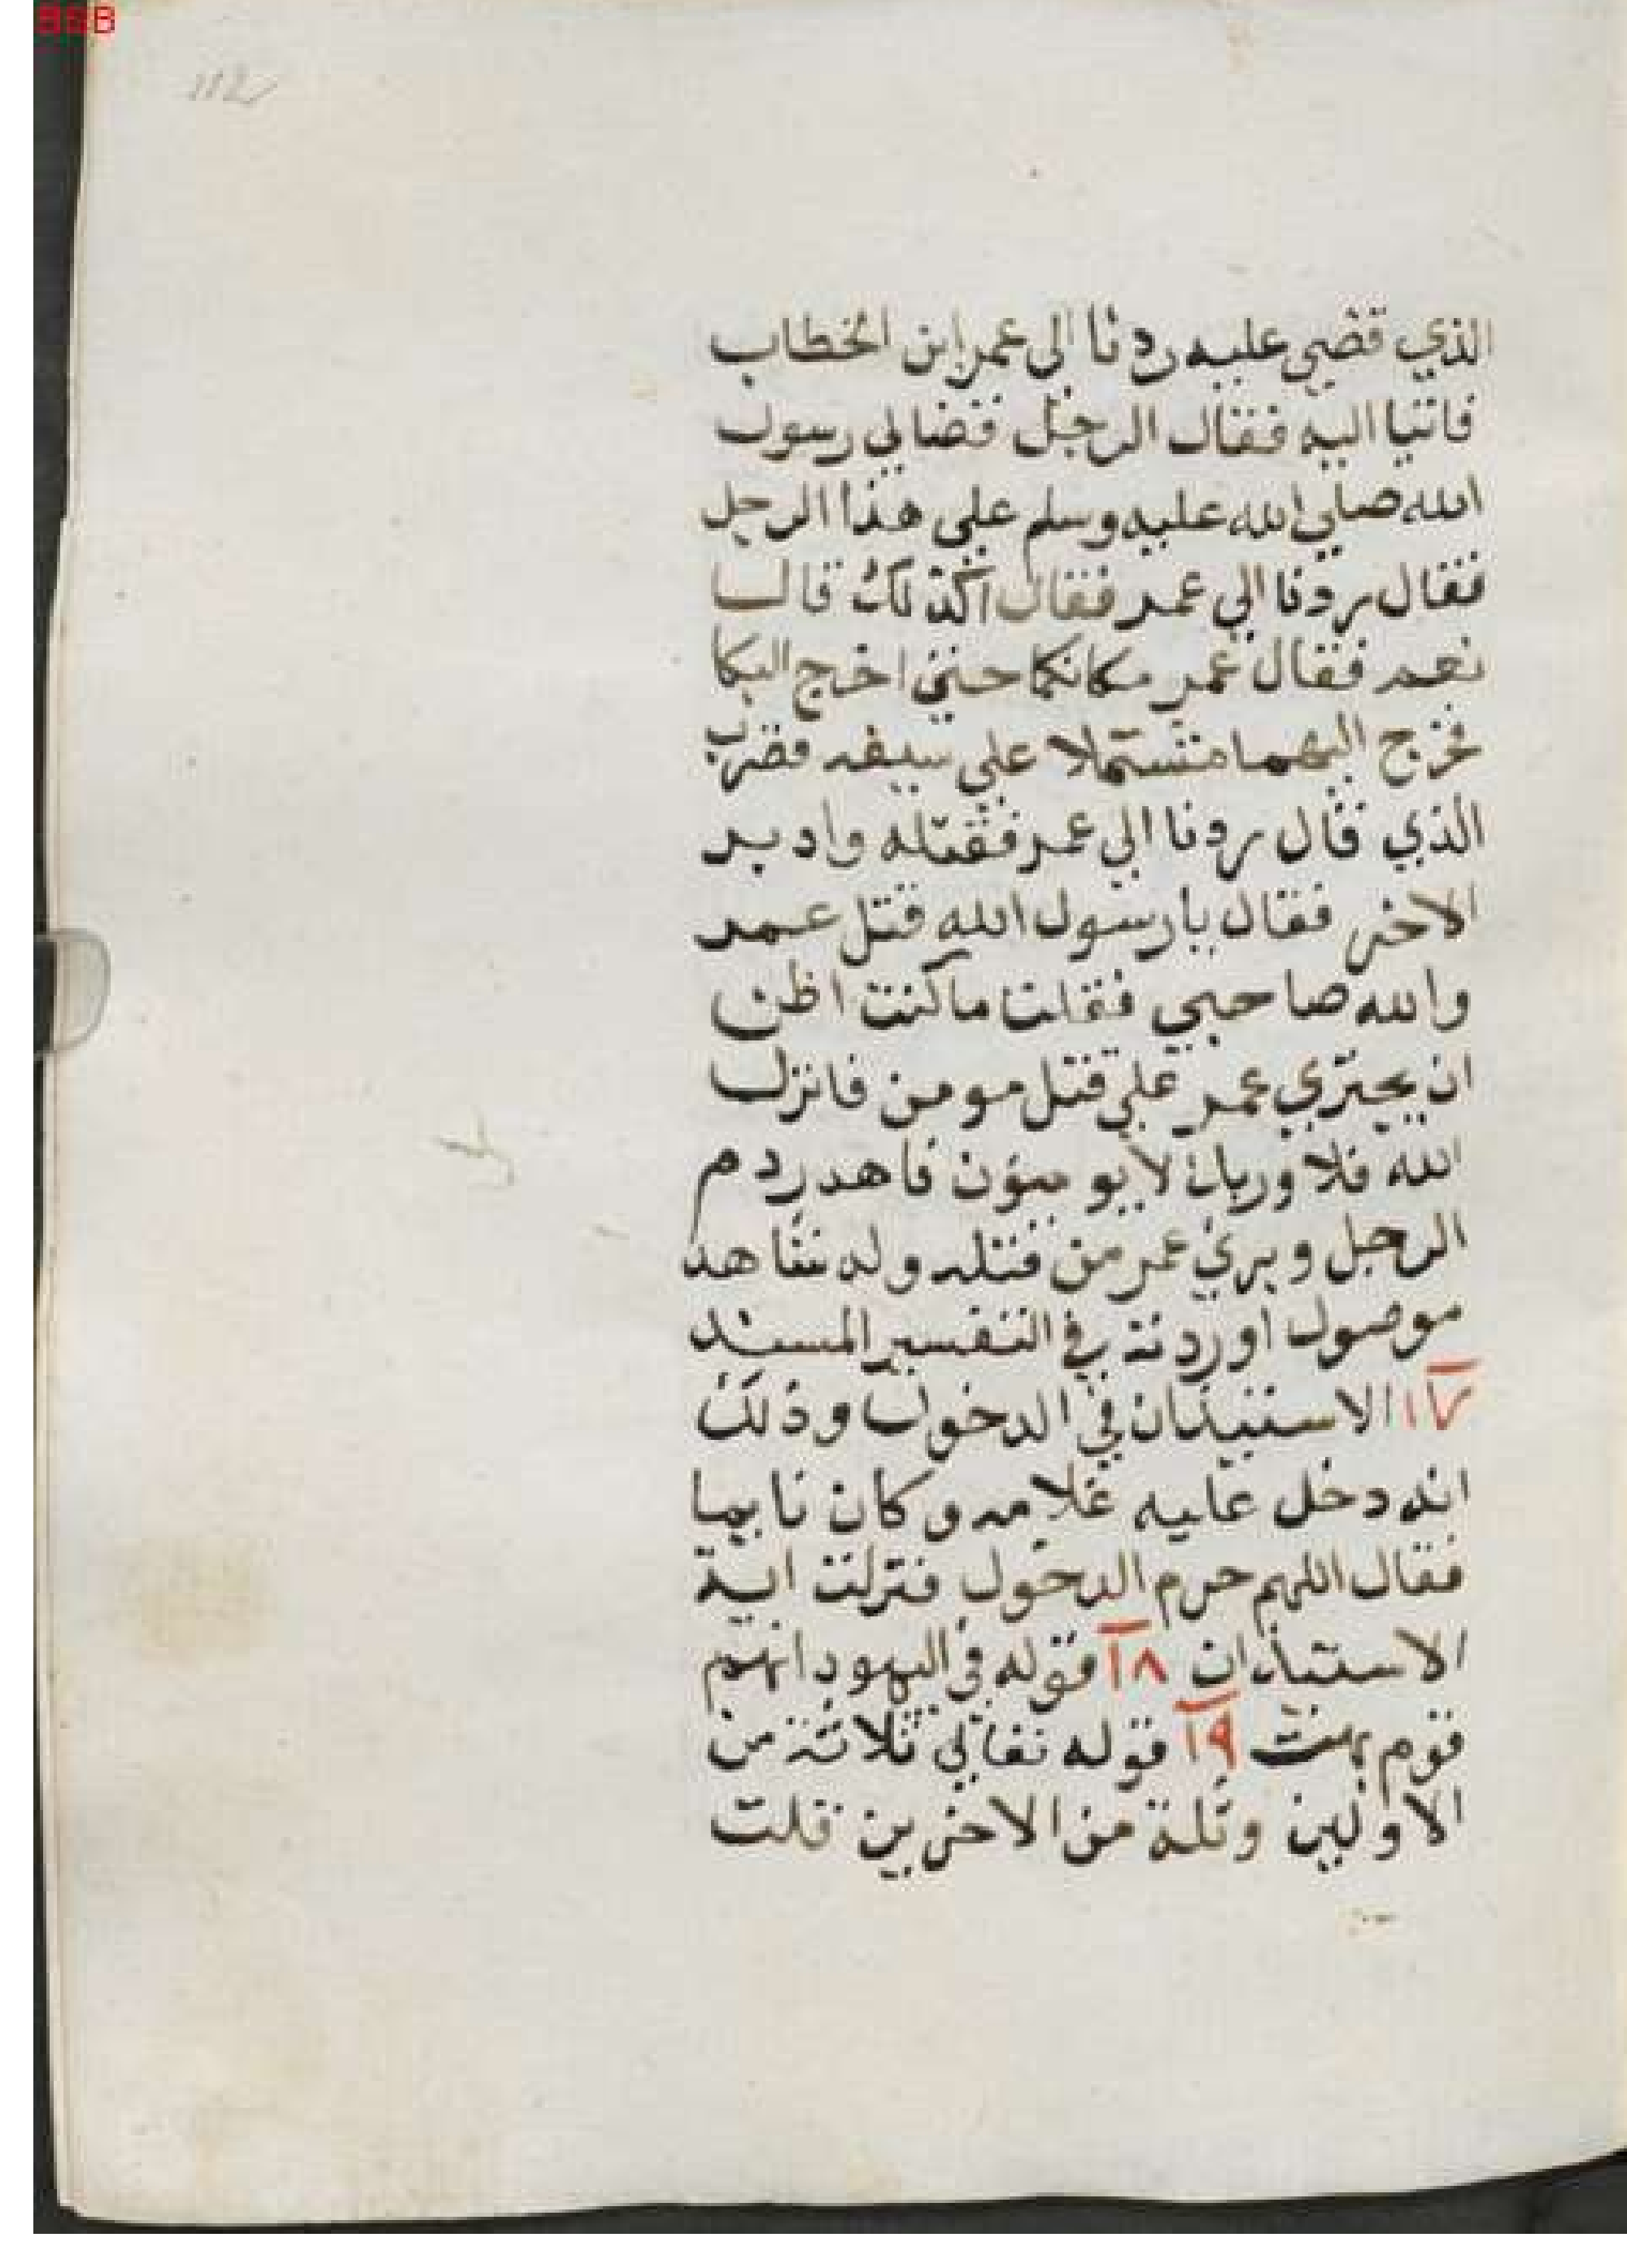 BSB
112
الذي قضي عليه ردنا الى عمر ابن الخطاب
فاتيا اليه فقال الرجل قضا لي رسول
الله صلي الله عليه وسلم على هذا الرجل
فقال ردنا الي عمر فقال اكذلك قالا
نعم فقال عمر مكانكما حتي اخرج اليكما
فخرج اليهما مشتملا علي سيفه فضرب
الذي قال ردنا الي عمر فقتله وادبر
الاخر فقال يا رسول الله قتل عمر
والله صاحبي فقلت ما كنت اظن
ان يجتري عمر علي قتل مومن فانزل
الله فلا وربك لا يومنون فاهدر دم
الرجل وبري عمر من قتله وله شاهد
موصول اوردته في التفسير المسند
١٧ الاستيذان في الدخول وذلك
انه دخل عليه غلامه وكان نايما
فقال اللهم حرم الدخول فنزلت اية
الاستيذان ١٨ قوله في اليهود انهم
قوم بهت ١٩ قوله تعالي ثلاثة من
الاولين وثلة من الاخرين قلت